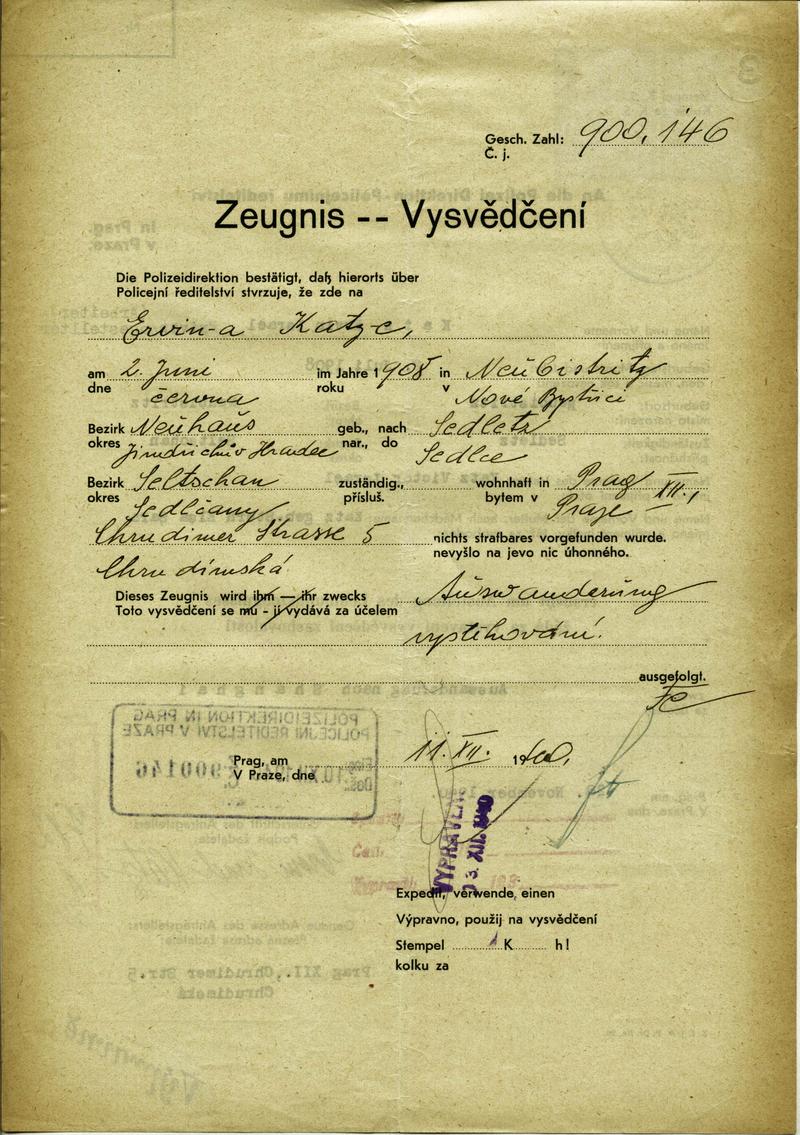 Gesch. Zahl: 900.146
Č. j.
Zeugnis -- Vysvědčení
Die Polizeidirektion bestätigt, daß hierorts über
Policejní ředitelství stvrzuje, že zde na
Ervin-a Katz-e,
am 2. Juni im Jahre 1908 in Neubistritz
dne června roku v Nové Bystřici
Bezirk Neuhaus geb., nach Sedletz
okres Jindřichův Hradec nar., do Sedlce
Bezirk Seltschan zuständig., wohnhaft in Prag XII.,
okres Sedlčany přísluš. bytem v Praze
Chrudimer Strasse 5 nichts strafbares vorgefunden wurde.
Chrudimská nevyšlo na jevo nic úhonného.
Dieses Zeugnis wird ihm — ihr zwecks Auswanderung
Toto vysvědčení se mu - jí vydává za účelem
vystěhování.
ausgefolgt.
Prag, am 11. XII. 1940.
V Praze, dne
VYPRAVENO
13. XII. 1940
Expedit, verwende, einen
Výpravno, použij na vysvědčení
Stempel K h!
kolku za
POLIZEIDIREKTION IN PRAG
POLICEJNÍ ŘEDITELSTVÍ V PRAZE
900146